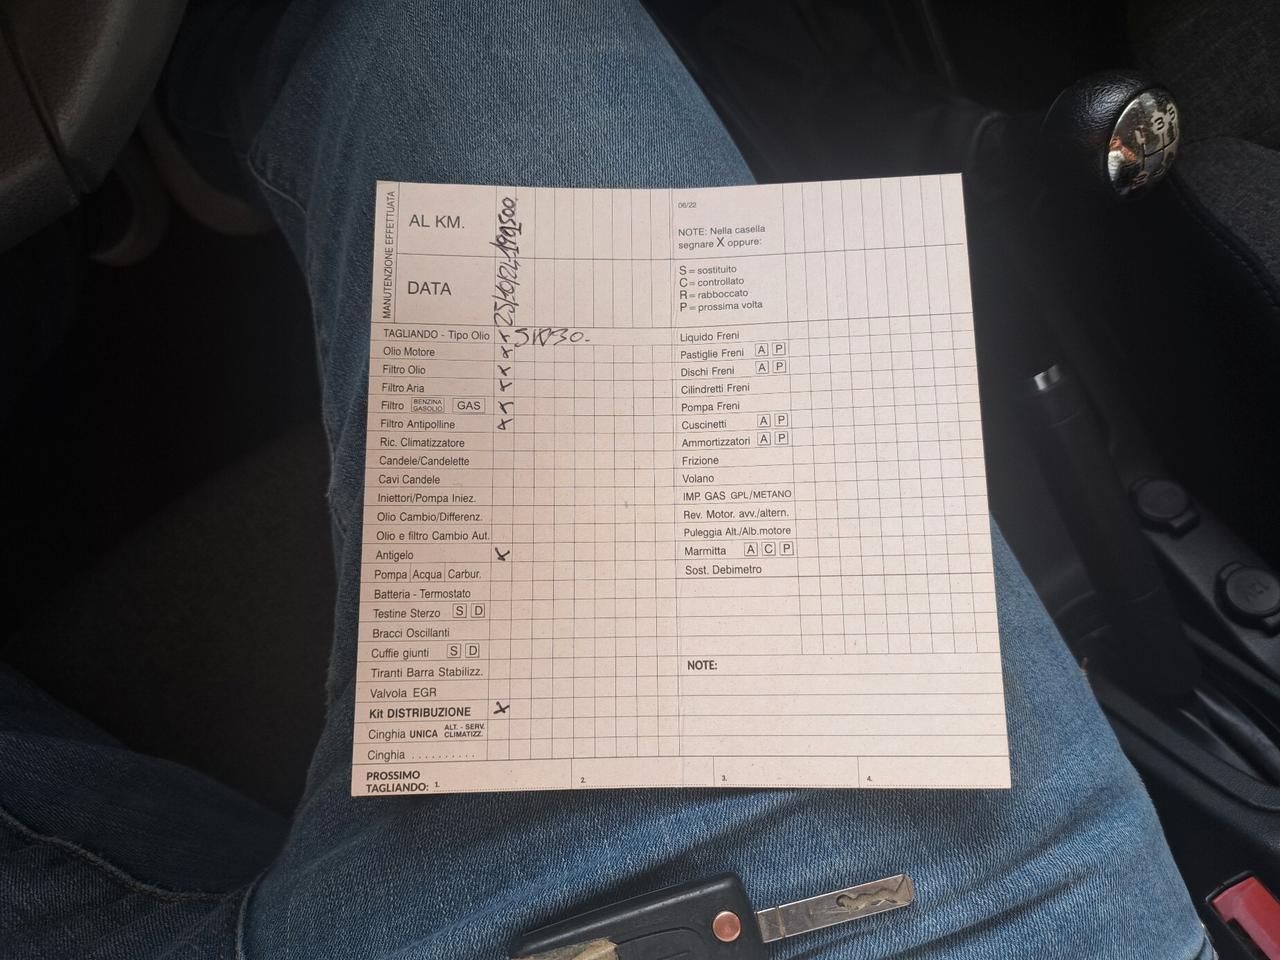 MANUTENZIONE EFFETTUATA
AL KM.
DATA
25/10/24 199500
TAGLIANDO - Tipo Olio X 5W30.
Olio Motore X
Filtro Olio X
Filtro Aria X
Filtro BENZINA GASOLIO GAS X
Filtro Antipolline X
Ric. Climatizzatore
Candele/Candelette
Cavi Candele
Iniettori/Pompa Iniez.
Olio Cambio/Differenz.
Olio e filtro Cambio Aut.
Antigelo X
Pompa Acqua Carbur.
Batteria - Termostato
Testine Sterzo S D
Bracci Oscillanti
Cuffie giunti S D
Tiranti Barra Stabilizz.
Valvola EGR
Kit DISTRIBUZIONE X
Cinghia UNICA ALT. - SERV. CLIMATIZZ.
Cinghia ..........
PROSSIMO
TAGLIANDO: 1. 2. 3. 4.
06/22
NOTE: Nella casella
segnare X oppure:
S = sostituito
C = controllato
R = rabboccato
P = prossima volta
Liquido Freni
Pastiglie Freni A P
Dischi Freni A P
Cilindretti Freni
Pompa Freni
Cuscinetti A P
Ammortizzatori A P
Frizione
Volano
IMP. GAS GPL/METANO
Rev. Motor. avv./altern.
Puleggia Alt./Alb.motore
Marmitta A C P
Sost. Debimetro
NOTE: